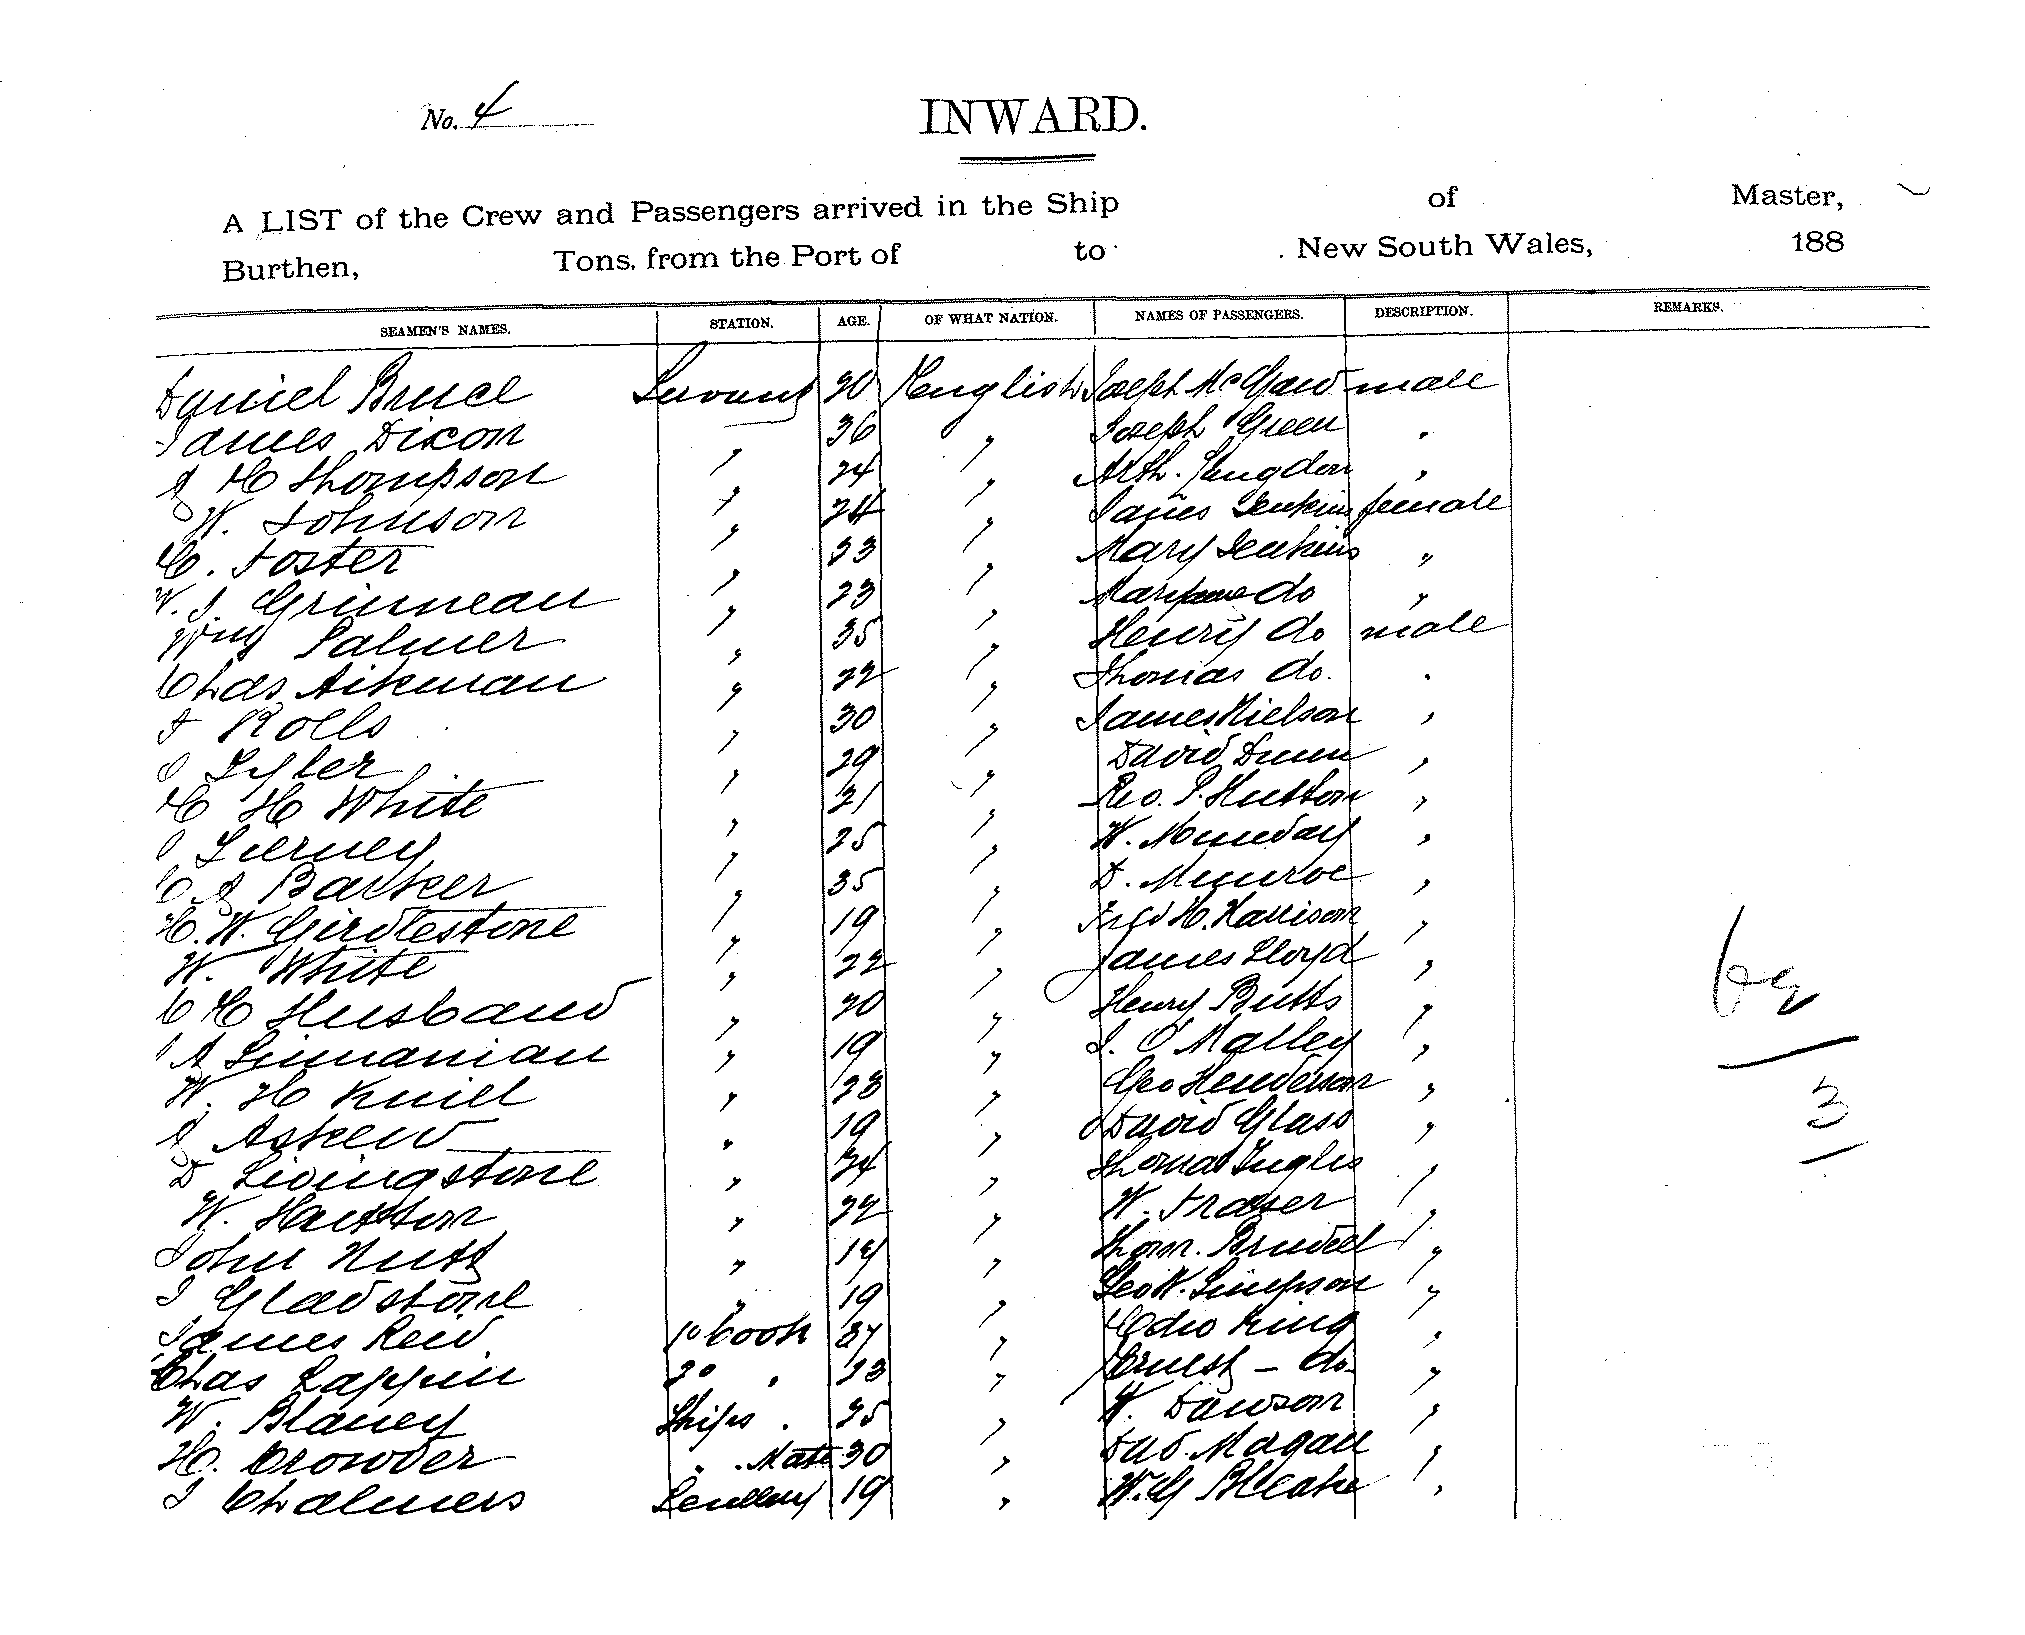 No. 4
INWARD.
A LIST of the Crew and Passengers arrived in the Ship of Master,
Burthen, Tons, from the Port of to New South Wales, 188
SEAMEN'S NAMES. STATION. AGE. OF WHAT NATION. NAMES OF PASSENGERS. DESCRIPTION. REMARKS.
Daniel Bruce Servant 20 English Joseph male
James Dixon " 36 " Joseph Green "
J H Thompson " 24 " Arth. Langdon "
W. Johnson " 24 " Jenkins female
C. Foster " 33 " Mary Jenkins "
W. J. " 23 " do "
Wm Palmer " 35 " Henry do male
Chas Aikman " 22 " Thomas do. "
Rolls " 30 " James Nielson "
Tyler " 29 " David Dunn "
C H White " 21 " P. Hutton "
Tierney " 25 " W. Munday "
C A Barker " 35 " D. Munroe "
H. W. Girdlestone " 19 " H. Harrison "
W. White " 22 " James Lloyd "
C H Husband " 20 " Henry Butts "
A " 19 " J. O'Malley "
W. H Knill " 28 " Geo Henderson "
J Askew " 19 " David Glass "
D Livingstone " 24 " Thomas Inglis "
W. Hutton " 22 " W. Fraser "
John Nutt " 19 " Thom. "
J Gladstone " 19 " Geo W. Simpson "
James Reid 1o Cook 37 " King "
Chas Lappin 2o " 23 " Ernest - do - "
W. Blaney Ships " 25 " W. Dawson "
H. Crowder " Mate 30 " "
J Chalmers 19 " W. G "
3